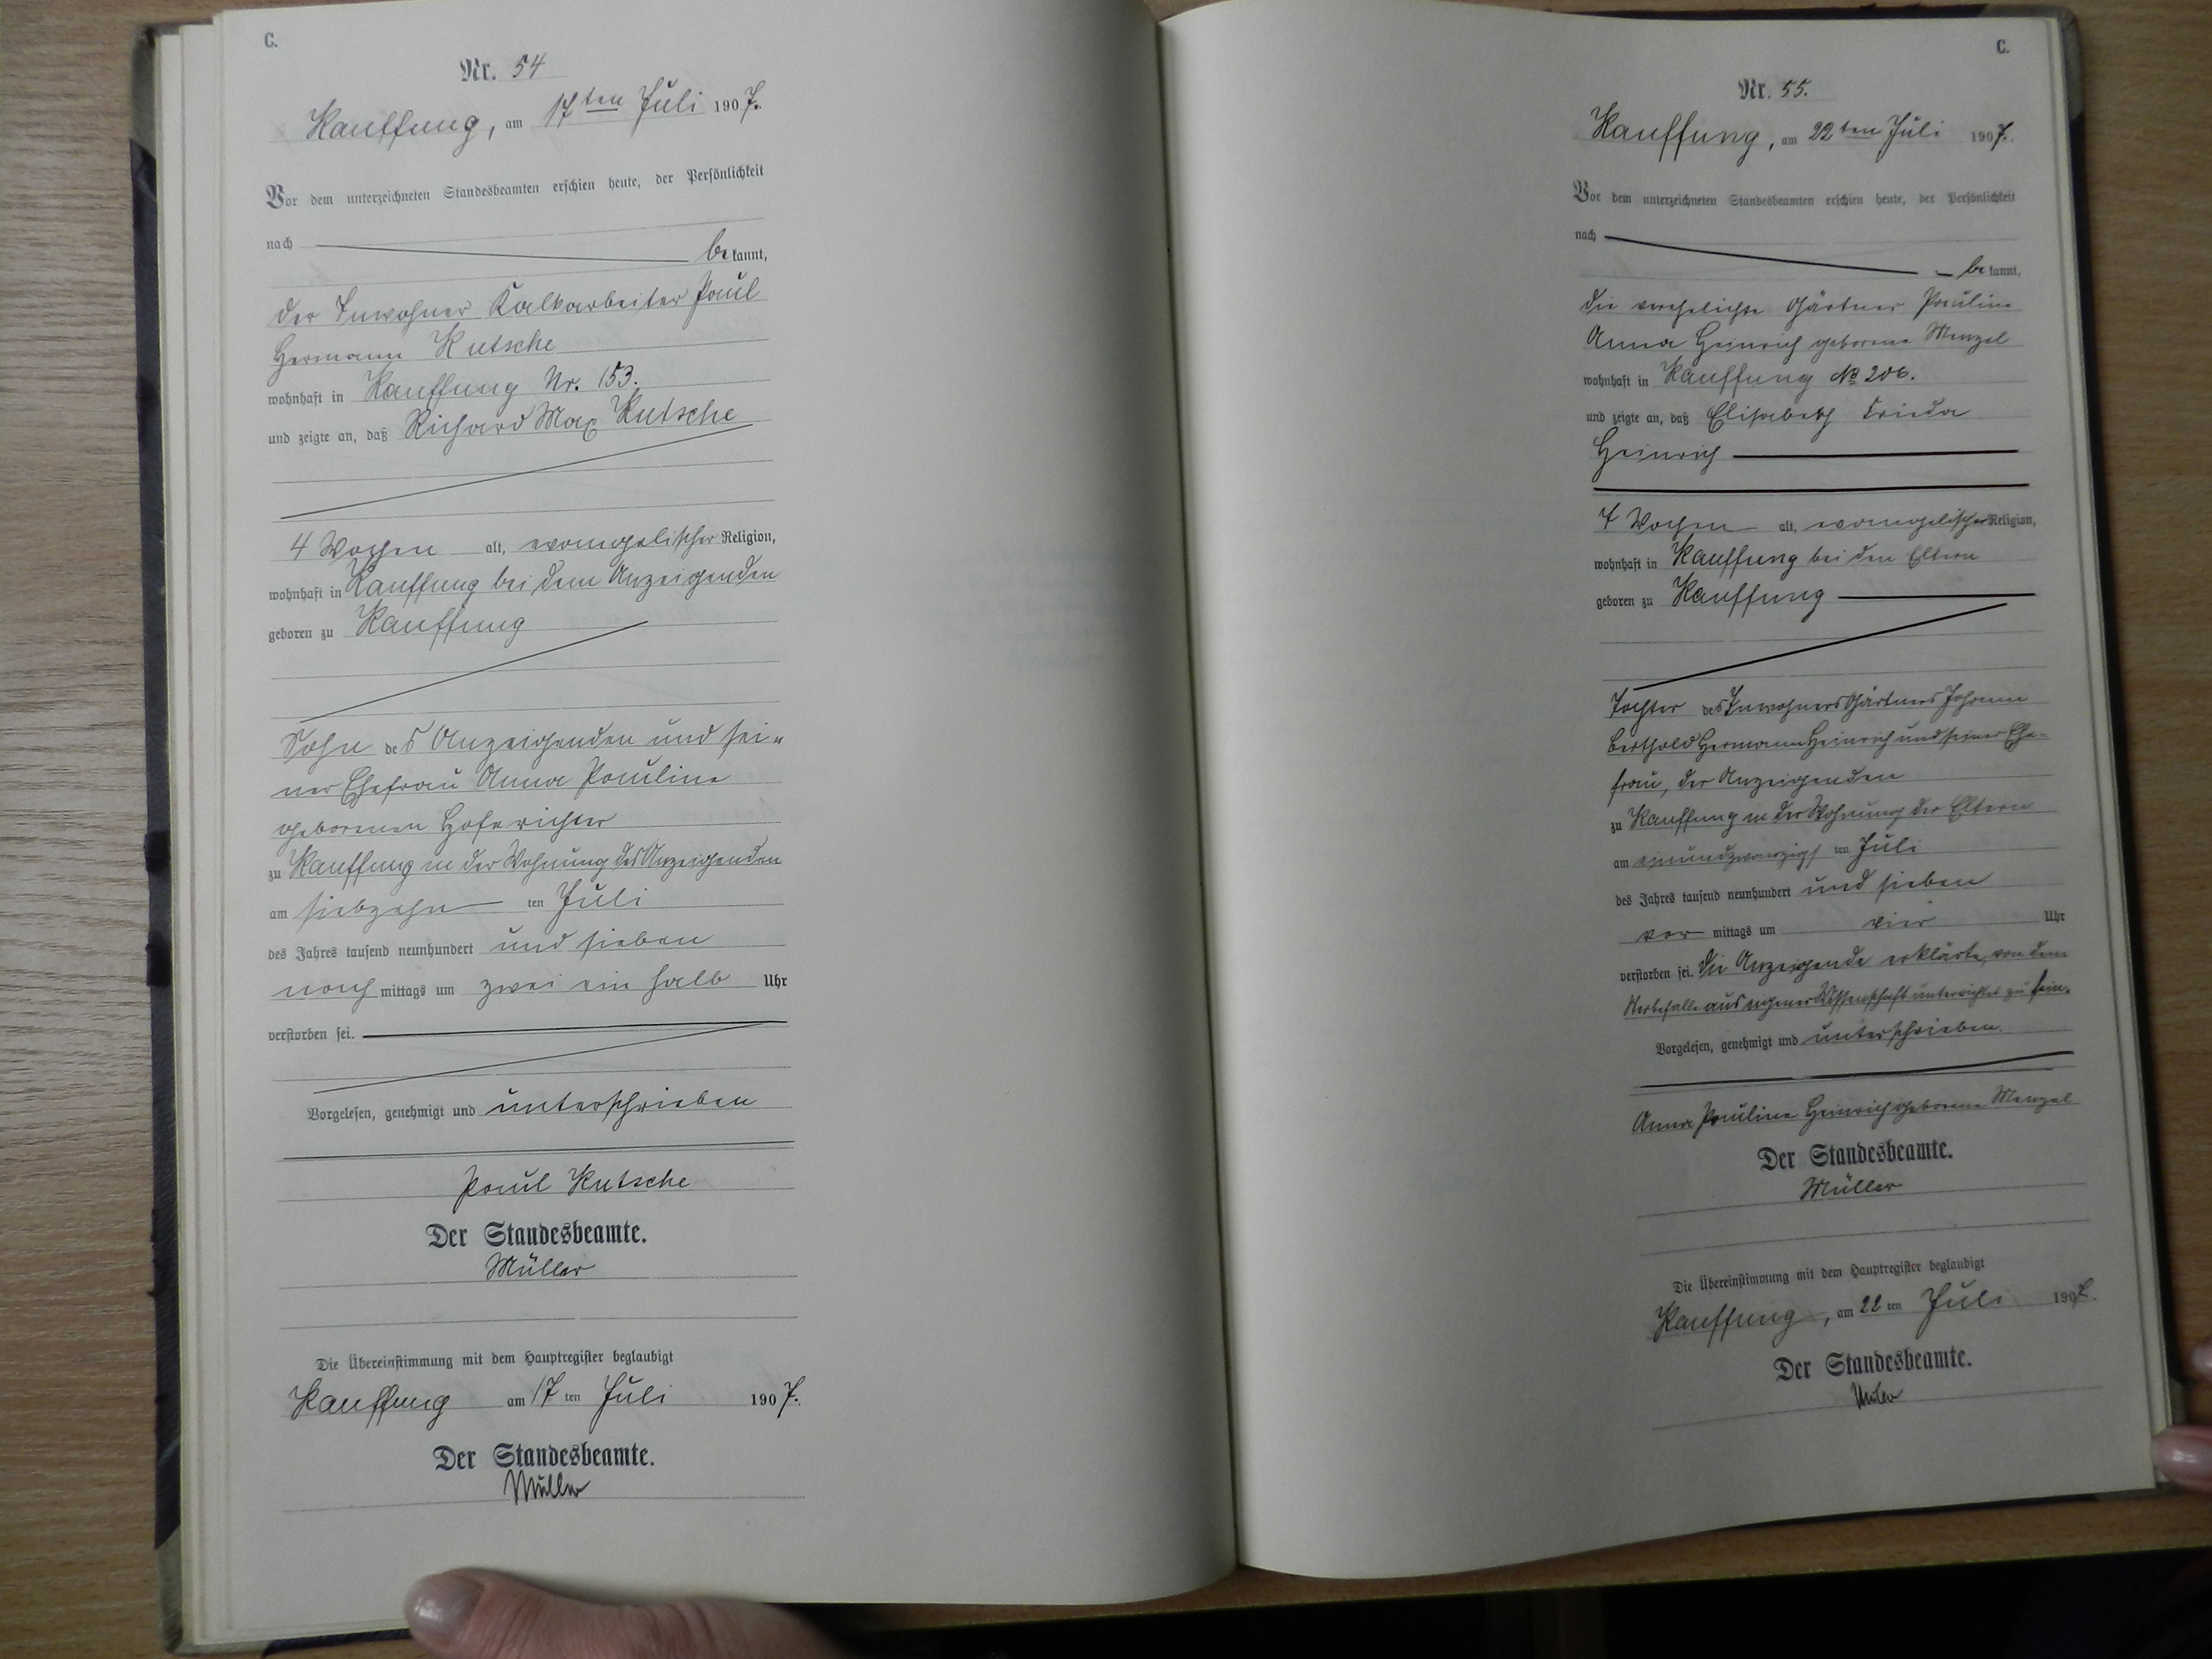 C.
Nr. 54
Kauffung, am 17ten Juli 1907.
Vor dem unterzeichneten Standesbeamten erschien heute, der Persönlichkeit
nach bekannt,
der Inwohner Kalkarbeiter Paul
Hermann Kutsche
wohnhaft in Kauffung Nr. 153.
und zeigte an, daß Richard Max Kutsche
4 Wochen alt, evangelischer Religion,
wohnhaft in Kauffung bei dem Anzeigenden
geboren zu Kauffung
Sohn des Anzeigenden und sei-
ner Ehefrau Anna Pauline
geborenen Hoferichter
zu Kauffung in der Wohnung des Anzeigenden
am siebzehn ten Juli
des Jahres tausend neunhundert und sieben
nach mittags um zwei ein halb Uhr
verstorben sei.
Vorgelesen, genehmigt und unterschrieben
Paul Kutsche
Der Standesbeamte.
Müller
Die Übereinstimmung mit dem Hauptregister beglaubigt
Kauffung am 17 ten Juli 1907.
Der Standesbeamte.
Müller
C.
Nr. 55.
Kauffung, am 22ten Juli 1907.
Vor dem unterzeichneten Standesbeamten erschien heute, der Persönlichkeit
nach bekannt,
die verehelichte Gärtner Pauline
Anna Heinrich geborene Menzel
wohnhaft in Kauffung No 206.
und zeigte an, daß Elisabeth Frieda
Heinrich
7 Wochen alt, evangelischer Religion,
wohnhaft in Kauffung bei den Eltern
geboren zu Kauffung
Tochter des Inwohners Gärtners Johann
Berthold Hermann Heinrich und seiner Ehe-
frau, der Anzeigenden
zu Kauffung in der Wohnung der Eltern
am einundzwanzigs ten Juli
des Jahres tausend neunhundert und sieben
vor mittags um vier Uhr
verstorben sei. Die Anzeigende erklärte, von dem
Sterbefalle aus eigener Wissenschaft unterrichtet zu sein.
Vorgelesen, genehmigt und unterschrieben.
Anna Pauline Heinrich geborene Menzel
Der Standesbeamte.
Müller
Die Übereinstimmung mit dem Hauptregister beglaubigt
Kauffung, am 22 ten Juli 1907.
Der Standesbeamte.
Müller